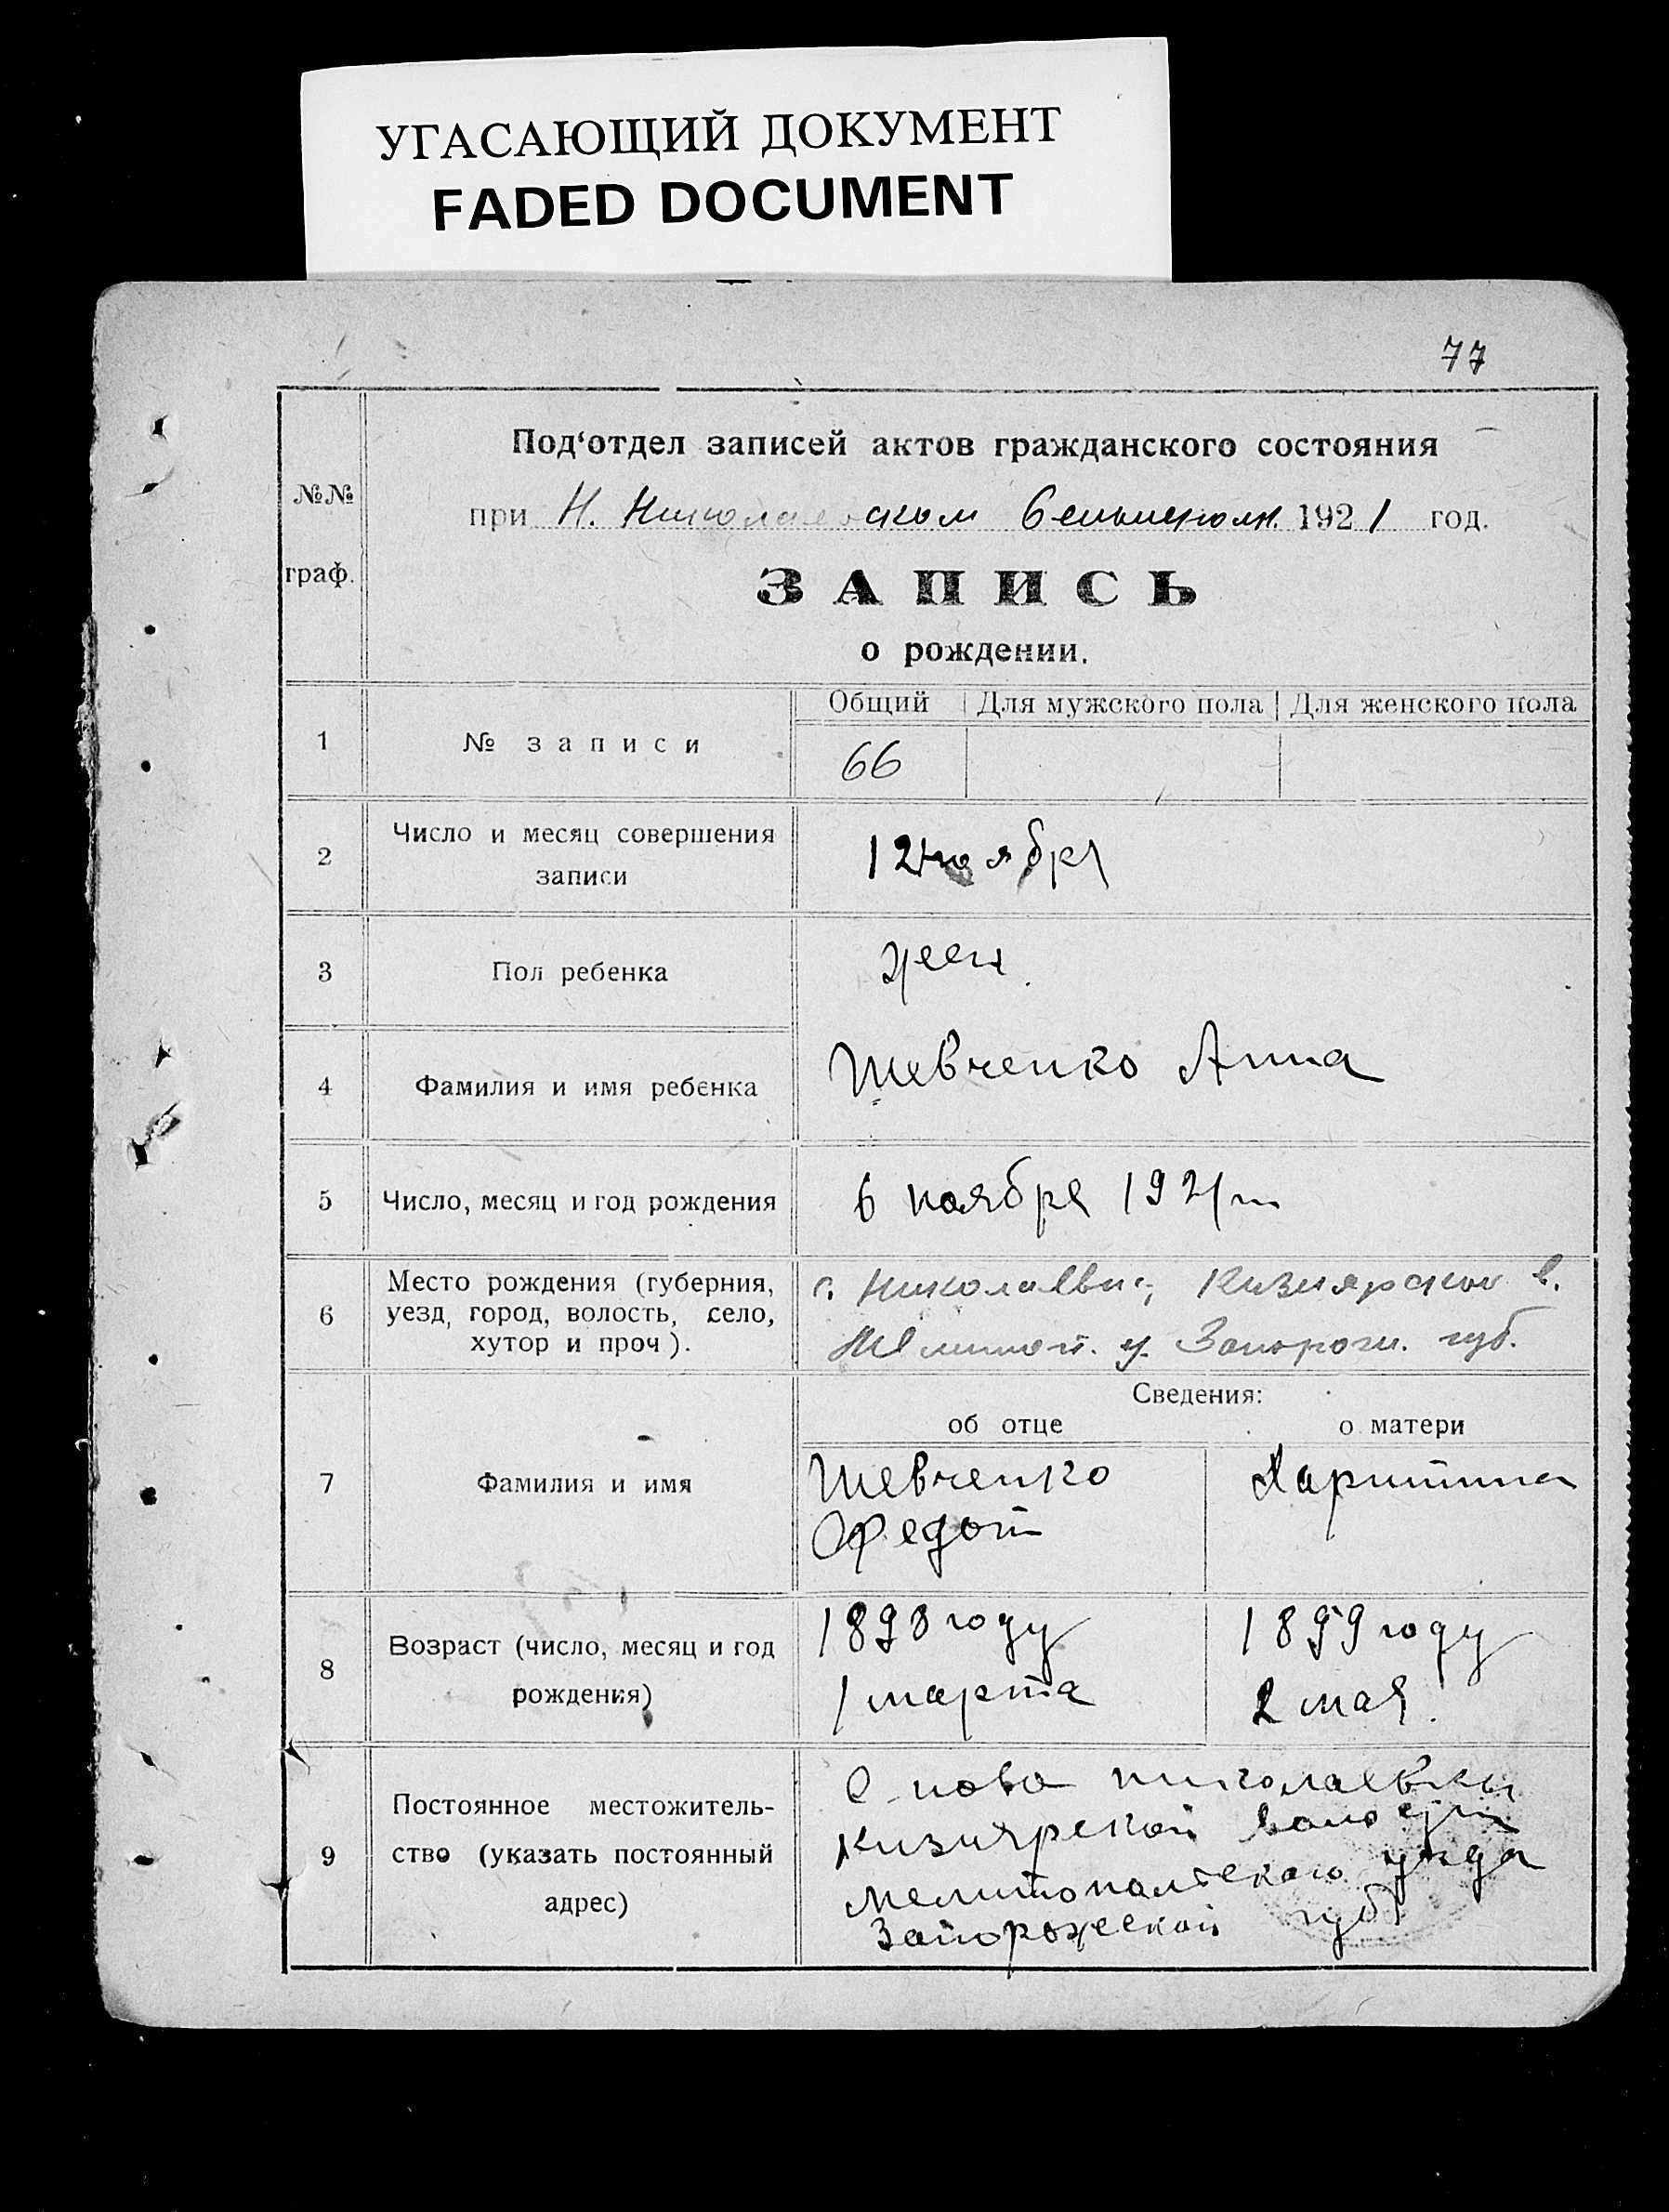 УГАСАЮЩИЙ ДОКУМЕНТ
FADED DOCUMENT
77
№№
граф.
Под‘отдел записей актов гражданского состояния
при Н. Николаевском 1921 год.
ЗАПИСЬ
о рождении.
Общий Для мужского пола Для женского пола
1 № записи 66
2 Число и месяц совершения
записи
12 ноября
3 Пол ребенка жен.
4 Фамилия и имя ребенка Шевченко Анна
5 Число, месяц и год рождения 6 ноября 1921 г
6 Место рождения (губерния,
уезд, город, волость, село,
хутор и проч).
с. Кизиярской в.
Мелитоп. у. Запорож. губ.
Сведения:
об отце о матери
7 Фамилия и имя
Шевченко
Федот
Харитина
8 Возраст (число, месяц и год
рождения)
1893 году
1 марта
1899 году
2 мая.
9 Постоянное местожитель-
ство (указать постоянный
адрес)
С ново николаевки
Кизиярской волости
Мелитопалского уезда
Запорожской губ